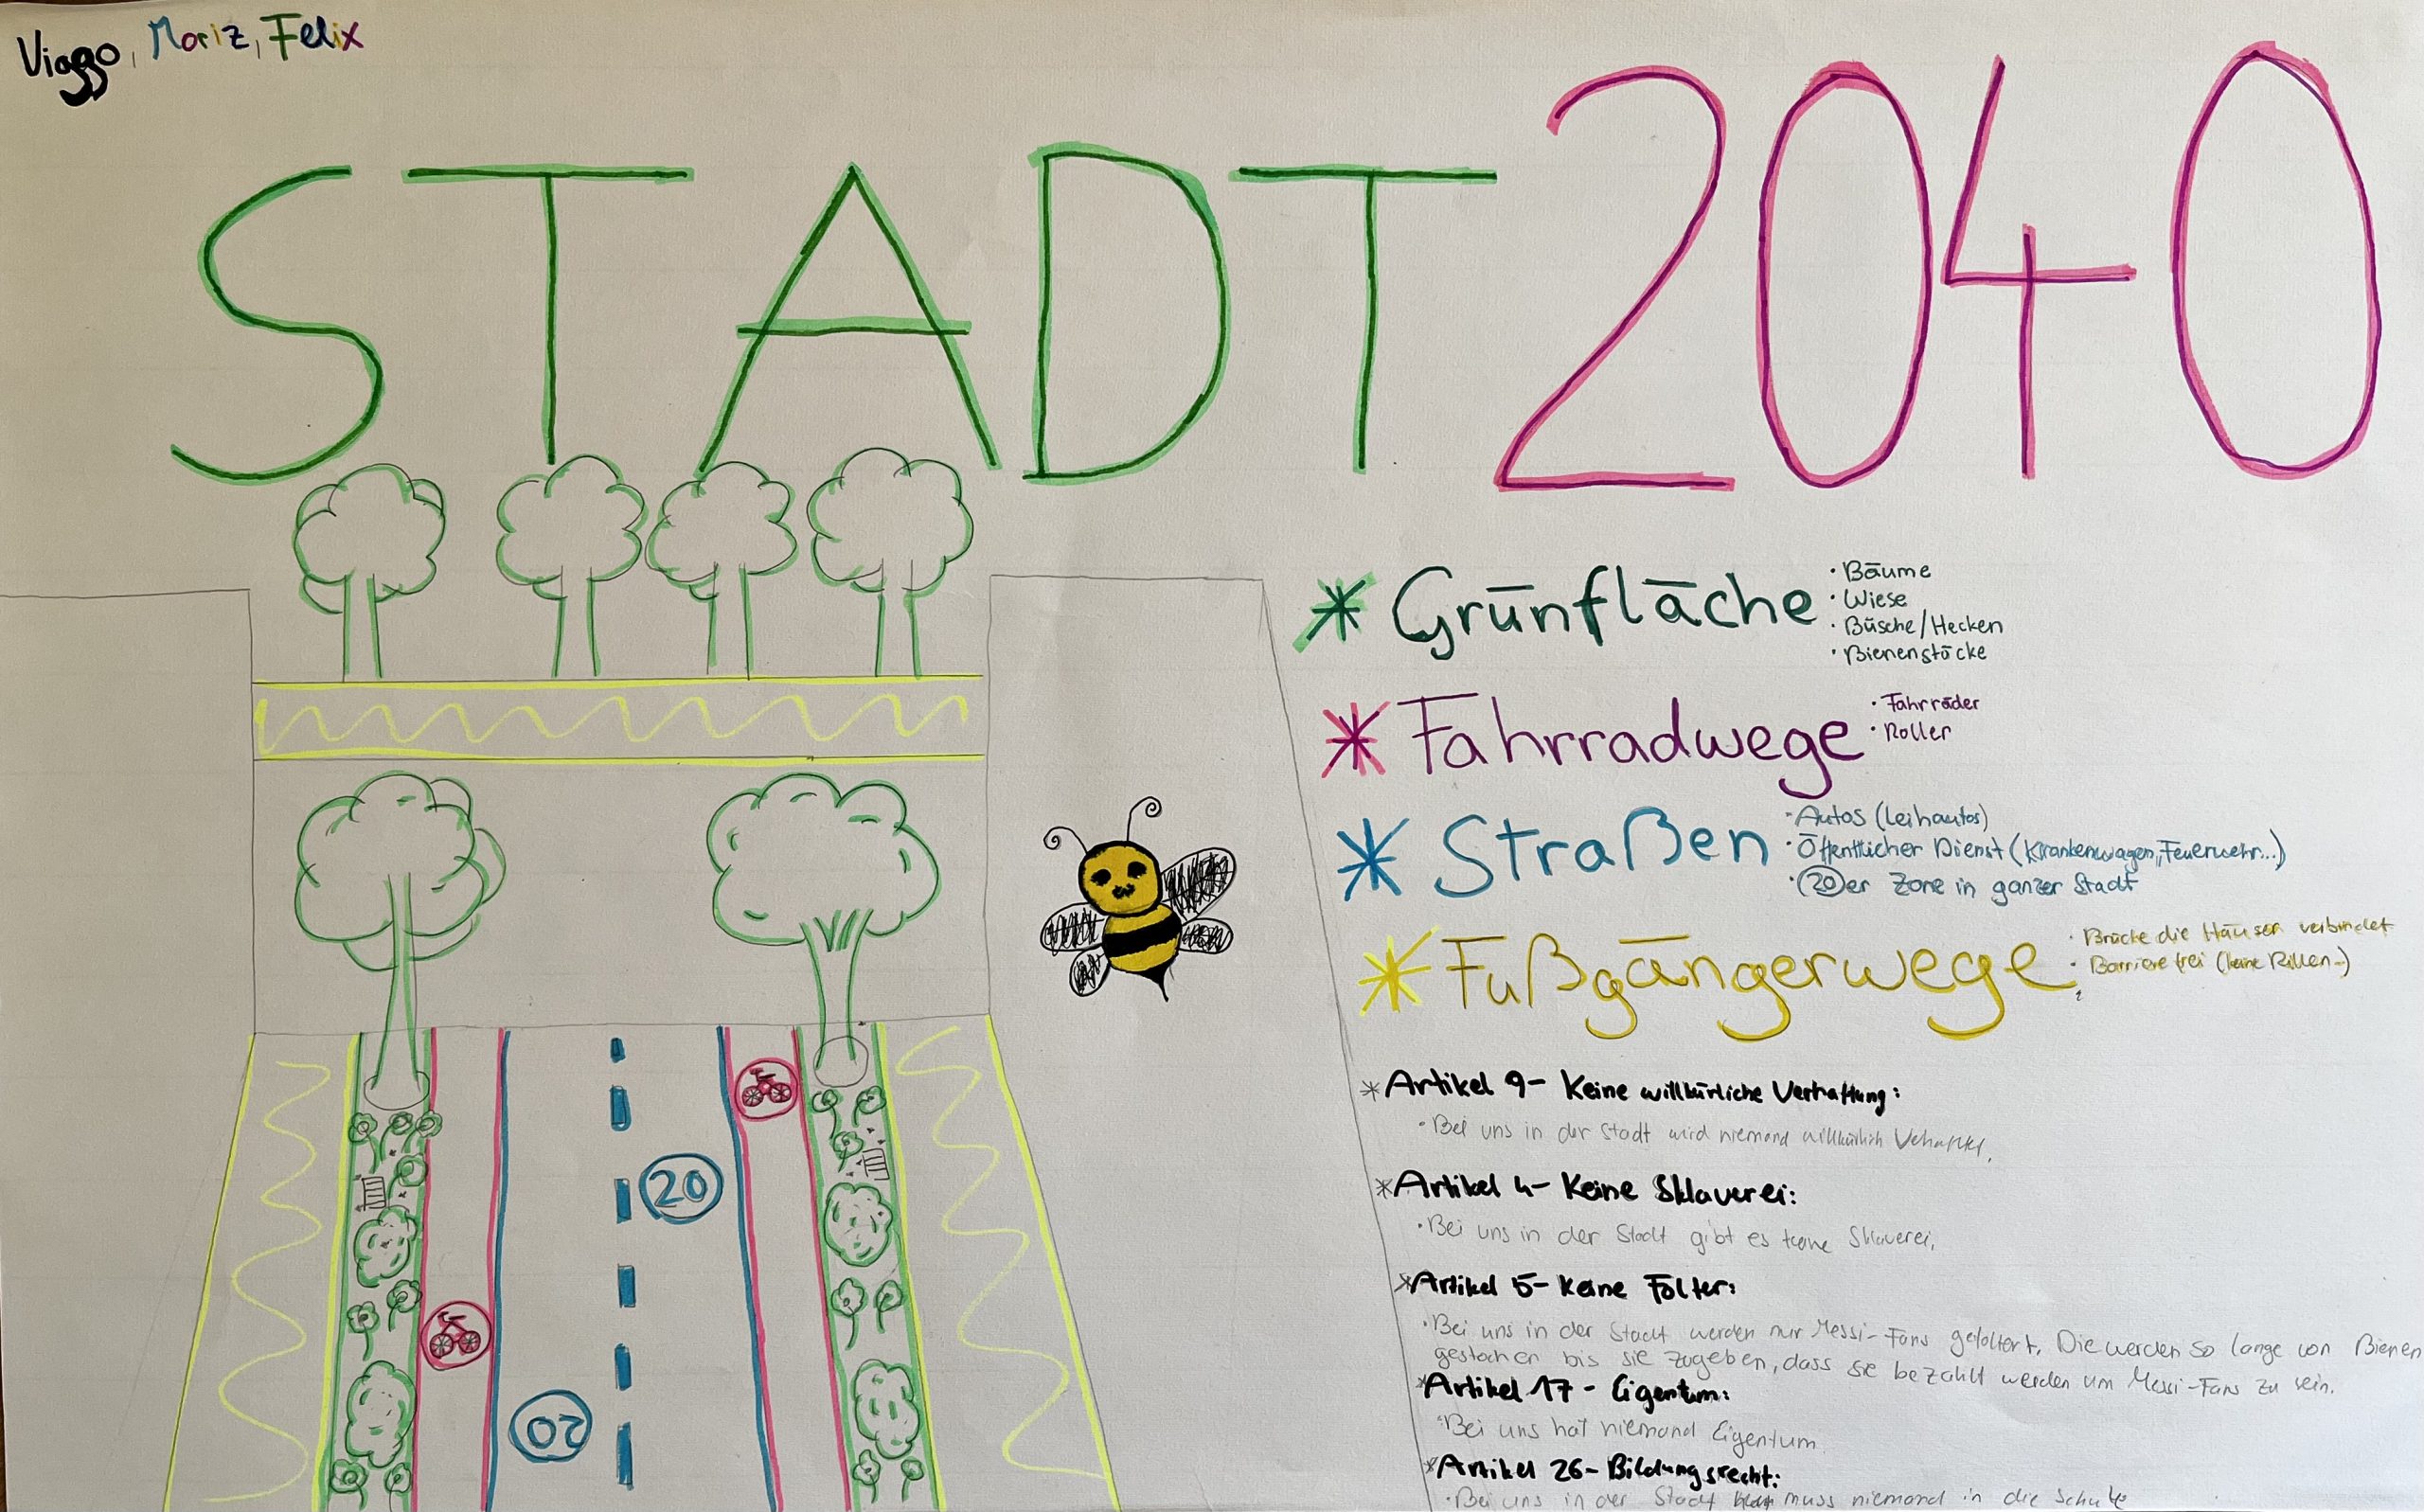 Viggo, Moriz, Felix
STADT 2040
* Grünfläche
· Bäume
· Wiese
· Büsche/Hecken
· Bienenstöcke
* Fahrradwege
· Fahrräder
· Roller
* Straßen
· Autos (Leihautos)
· Öffentlicher Dienst (Krankenwagen, Feuerwehr...)
· 20er Zone in ganzer Stadt
* Fußgängerwege
· Brücke die Häuser verbindet
· Barrierefrei (keine Rillen-)
* Artikel 9- Keine willkürliche Verhaftung:
· Bei uns in der Stadt wird niemand willkürlich
* Artikel 4- Keine Sklaverei:
· Bei uns in der Stadt gibt es keine Sklaverei.
* Artikel 5- Keine Folter:
· Bei uns in der Stadt werden nur Messi-Fans gefoltert. Die werden so lange von Bienen
gestochen bis sie zugeben, dass sie bezahlt werden um Messi-Fans zu sein.
* Artikel 17 - Eigentum:
· Bei uns hat niemand Eigentum
* Artikel 26- Bildungsrecht:
· Bei uns in der Stadt muss niemand in die Schule
20
20